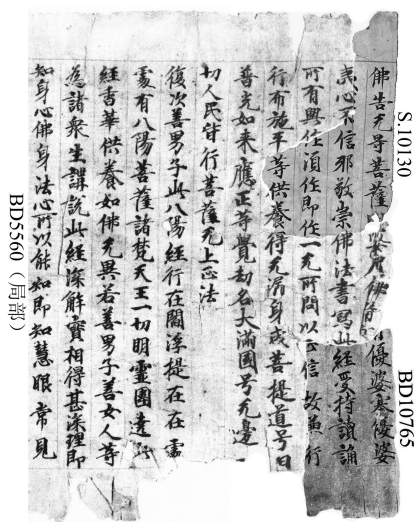 S.10130
BD10765
佛告无导菩薩 優婆塞優婆
夷心不信邪敬崇佛法書寫此經受持讀誦
所有興任湏任即任一无所問以正信故兼行
行布施平等供養得无漏身成菩提道号曰
普光如来應正等覺劫名大滿國号无邊
切人民皆行菩薩无上正法
復次善男子此八陽經行在閻浮提在在處
處有八陽菩薩諸梵天王一切明靈圍遶此
經香華供養如佛无異若善男子善女人等
為諸衆生講說此經深解實相得甚深理即
知身心佛身法心所以能知即知慧眼常見
BD5560（局部）